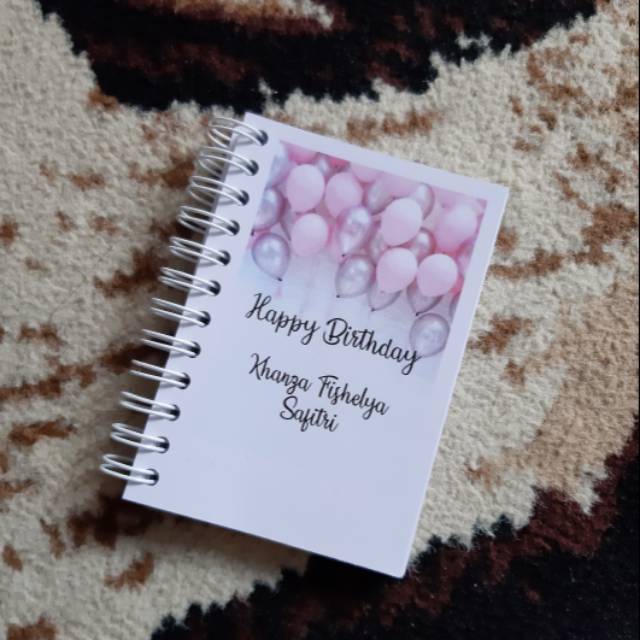 Happy Birthday
Khanza Fishelya
Safitri